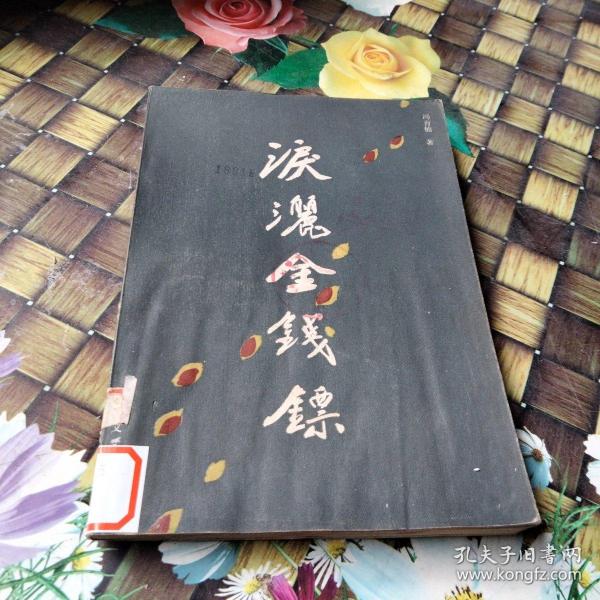 淚灑金錢鏢
冯育楠 著
孔夫子旧书网
www.kongfz.com